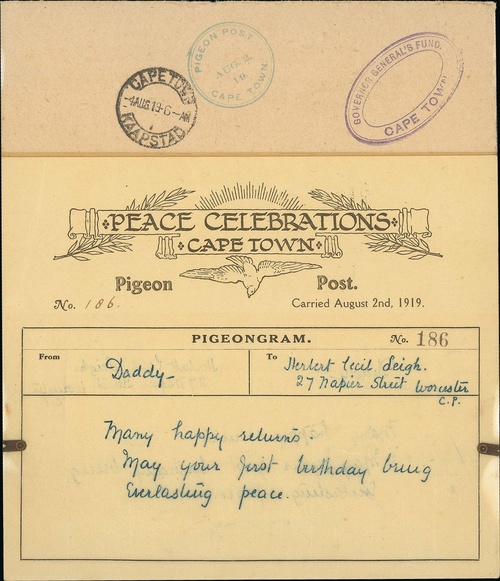 PIGEON POST
AUG. 2.
19.
CAPE TOWN
GOVERNOR GENERAL'S FUND.
CAPE TOWN
CAPE TOWN
4 AUG 19-6-AM
KAAPSTAD
PEACE CELEBRATIONS
CAPE TOWN
Pigeon Post.
No. 186. Carried August 2nd, 1919.
PIGEONGRAM. No. 186
From Daddy- To Herbert Cecil Leigh.
27 Napier Street Worcester
C.P.
Many happy returns.
May your first birthday bring
Everlasting peace.